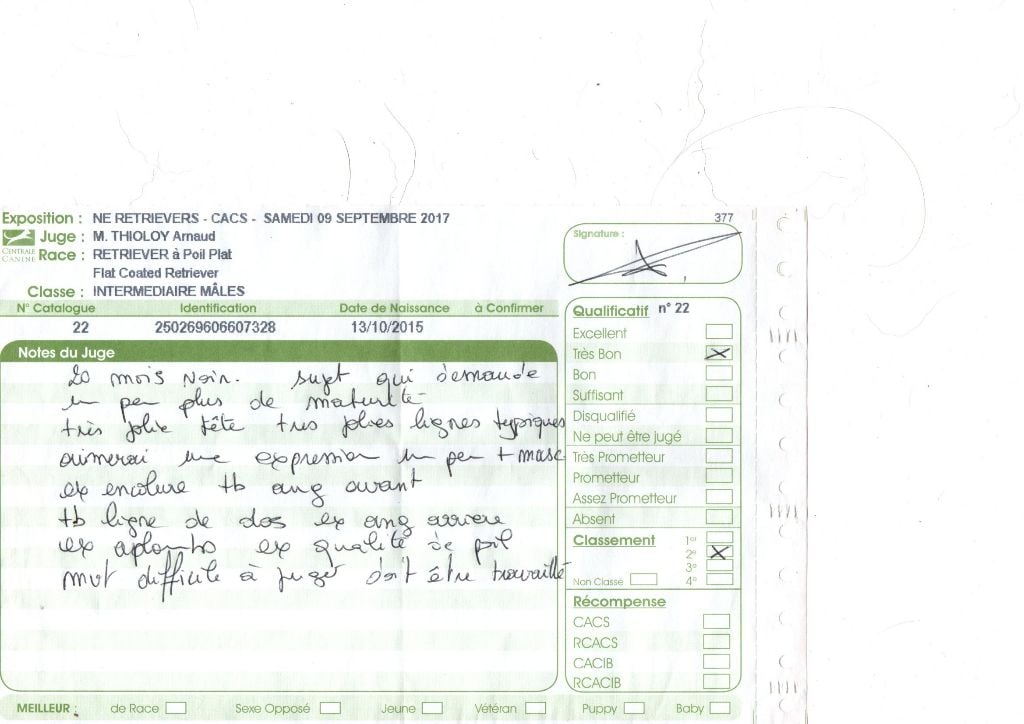 377
Exposition : NE RETRIEVERS - CACS - SAMEDI 09 SEPTEMBRE 2017
Juge : M. THIOLOY Arnaud
CENTRALE CANINE
Race : RETRIEVER à Poil Plat
Flat Coated Retriever
Classe : INTERMEDIAIRE MÂLES
Signature :
N° Catalogue Identification Date de Naissance à Confirmer
22 250269606607328 13/10/2015
Notes du Juge
20 mois Noir. sujet qui demande
un peu plus de maturité-
très jolie tête très jolies lignes typiques
aimerai une expression un peu + masc
ex encolure tb ang avant
tb ligne de dos ex ang arrière
ex aplombs ex qualité de poil
mvt difficile à juger doit être travaillé
Qualificatif n° 22
Excellent
Très Bon
Bon
Suffisant
Disqualifié
Ne peut être jugé
Très Prometteur
Prometteur
Assez Prometteur
Absent
Classement 1er
2e
3e
Non Classé 4e
Récompense
CACS
RCACS
CACIB
RCACIB
MEILLEUR : de Race Sexe Opposé Jeune Vétéran Puppy Baby